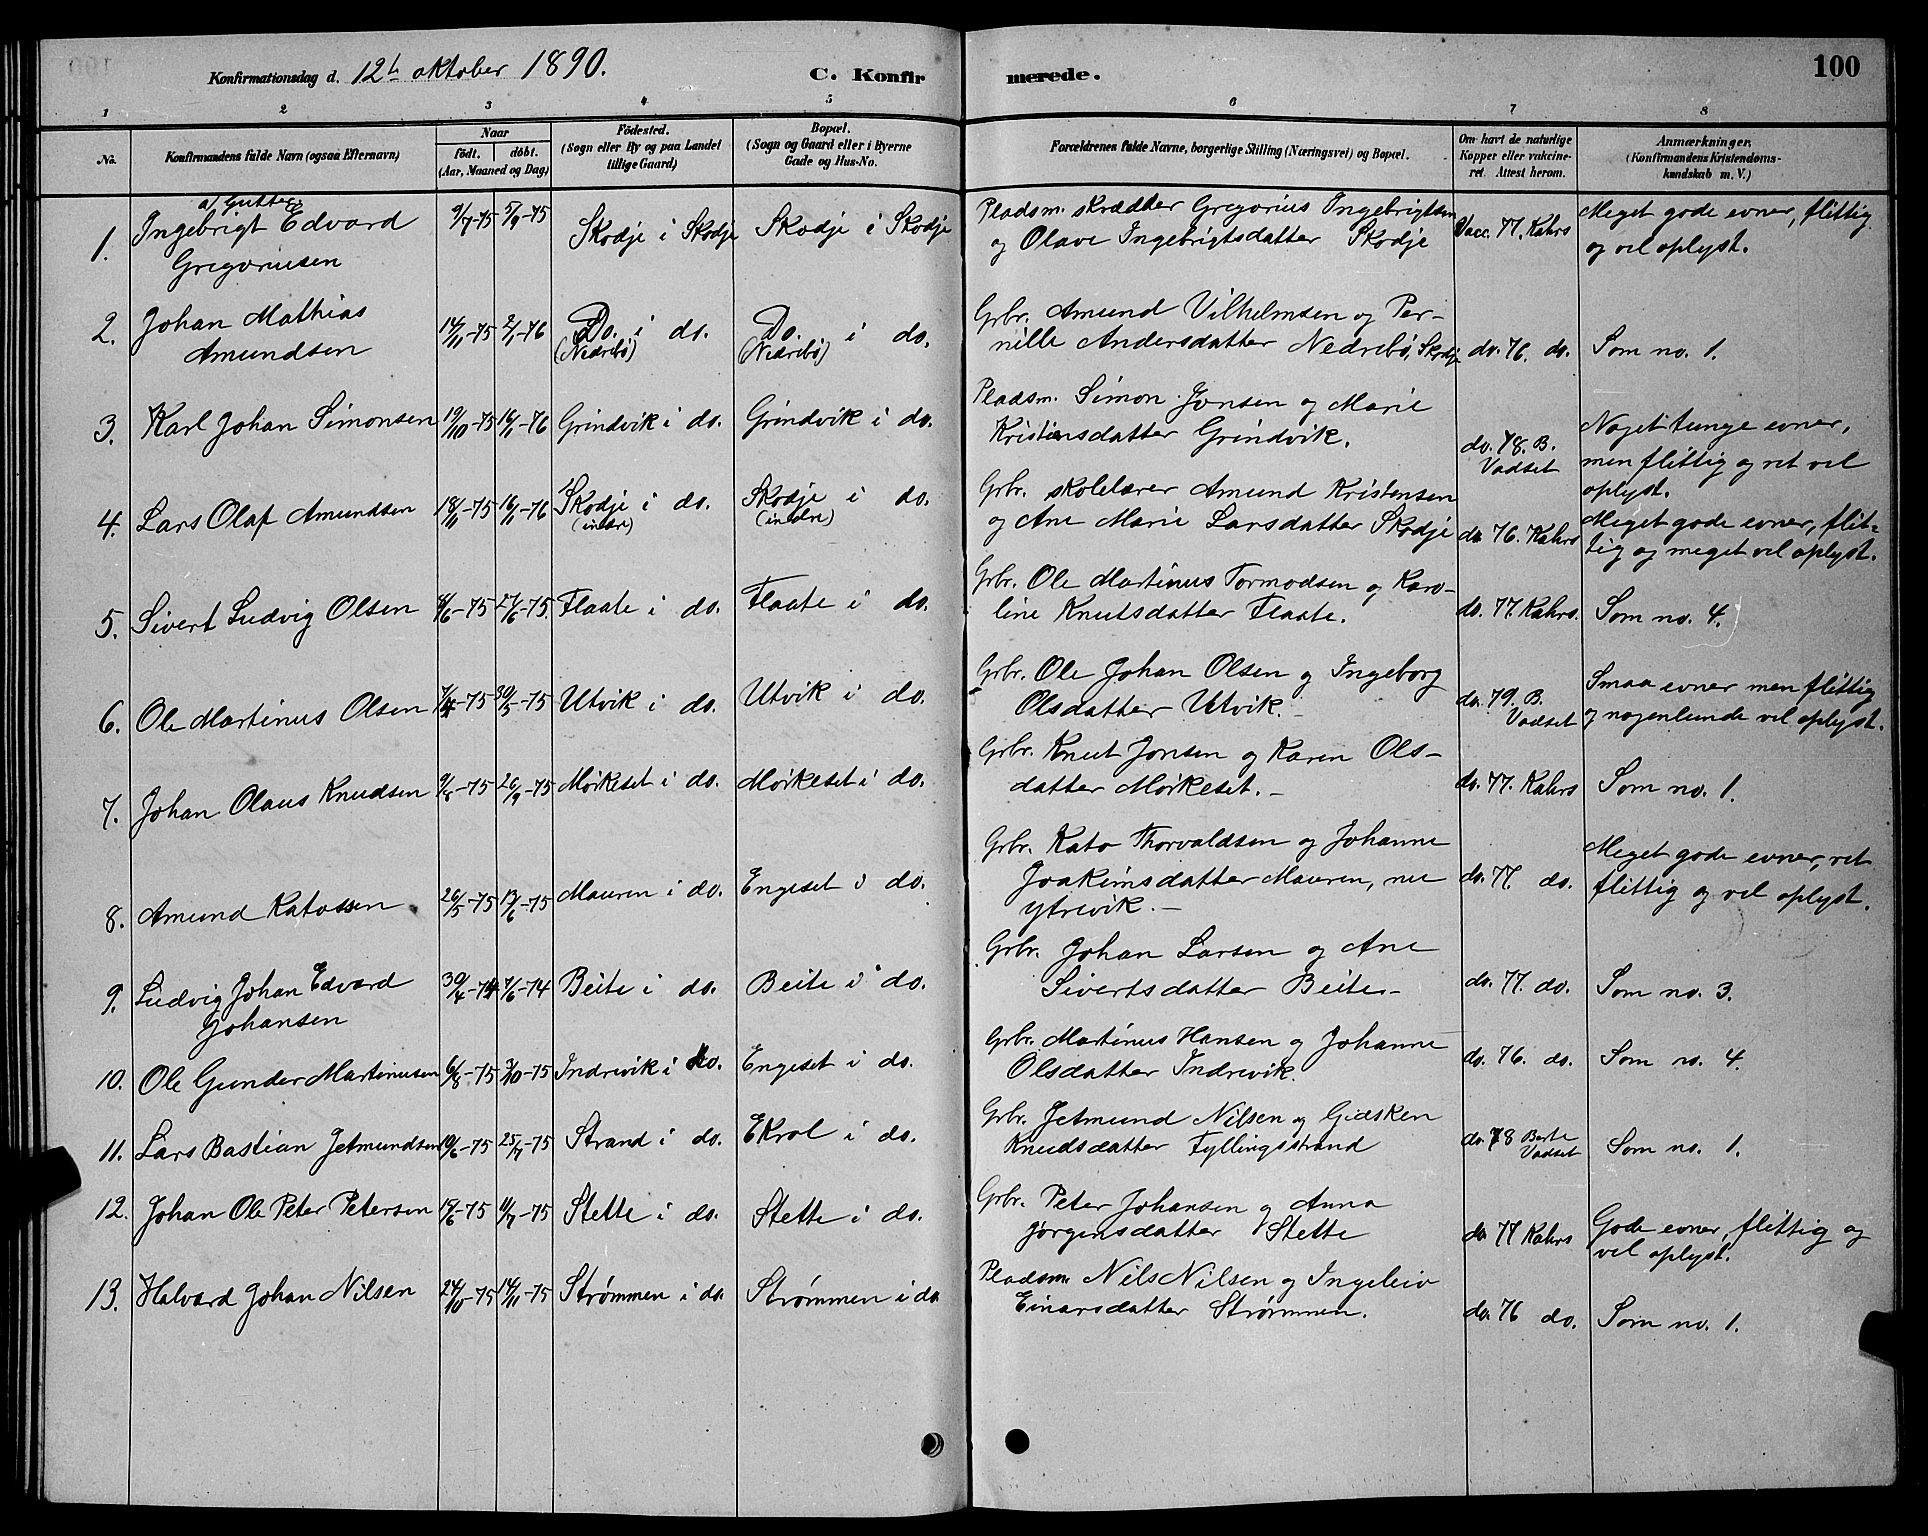 Konfirmationsdag d. 12te oktober 1890. C. Konfirmerede. 100
1 2 3 4 5 6 7 8
No. Konfirmandens fulde Navn (ogsaa Efternavn)
Naar
födt. döbt.
(Aar, Maaned og Dag)
Födested.
(Sogn eller By og paa Landet
tillige Gaard)
Bopæl.
(Sogn og Gaard eller i Byerne
Gade og Hus-No.
Forældrenes fulde Navne, borgerlige Stilling (Næringsvei) og Bopæl.
Om havt de naturlige
Kopper eller vakcine-
ret. Attest herom.
Anmærkninger.
(Konfirmandens Kristendoms-
kundskab m. V.)
a) Gutter:
1. Ingebrigt Edvard 9/7-75 5/9-75 Skodje i Skodje Skodje i Skodje Pladsm. skrædder Gregorius Ingebrigtsen Vacc. 77. Kahrs Meget gode evner, flittig
Gregoriusen og Olave Ingebrigtsdatter Skodje og vel oplyst.
2. Johan Mathias 14/11-75 2/1-76 Do. i do. Do. i do. Grbr. Amund Vilhelmsen og Per-
Amundsen (Nedrebø) (Nedrebø) nille Andersdatter Nedrebø, Skodje do. 76. do. Som no. 1.
3. Karl Johan Simonsen 19/10-75 16/1-76 Grindvik i do. Grindvik i do. Pladsm. Simon Jonsen og Marie
Kristensdatter Grindvik. do. 78. B. Vadset Noget tunge evner,
men flittig og ret vel
oplyst.
4. Lars Olaf Amundsen 18/11-75 16/1-76 Skodje i do. Skodje i do. Grbr. skolelærer Amund Kristensen
(indre) (indre) og Ane Marie Larsdatter Skodje do. 76. Kahrs Meget gode evner, flit-
tig og meget vel oplyst.
5. Sivert Ludvig Olsen 8/6-75 27/6-75. Flaate i do. Flaate i do. Grbr. Ole Martinus Tormodsen og Karo-
line Knutsdatter Flaate. do. 77. Kahrs. Som no. 4.
6. Ole Martinus Olsen 7/4-75 30/5-75 Utvik i do. Utvik i do. Grbr. Ole Johan Olsen og Ingeborg
Olsdatter Utvik.- do. 79. B. Vadset Smaa evner men flittig
og nogenlunde vel oplyst.
7. Johan Olaus Knudsen 9/8-75 26/9-75 Mørkeset i do. Mørkeset i do. Grbr. Knut Jonsen og Karen Ols-
datter Mørkeset.- do. 77. Kahrs Som no. 1.
8. Amund Katossen 26/5-75 13/6-75 Mauren i do. Engeset i do. Grbr. Kato Thorvaldsen og Johanne
Joakimsdatter Mauren, nu do. 77. do. Meget gode evner, ret
ytrevik.- flittig og vel oplyst.
9. Ludvig Johan Edvard 30/4-74 7/6-74 Beite i do. Beite i do. Grbr. Johan Larsen og Ane
Johansen Sivertsdatter Beite.- do. 77. do. Som no. 3.
10. Ole Gunder Martinusen 6/8-75 3/10-75 Indrevik i do. Engeset i do. Grbr. Martinus Hansen og Johanne
Olsdatter Indrevik. do. 76. do. Som no. 4.
11. Lars Bastian Jetmundsen 19/6-75 25/7-75 Strand i do. Ekrol i do. Grbr. Jetmund Nilsen og Gidsken
Knudsdatter Fyllingsstrand do. 78 Berte Vadset Som no. 1.
12. Johan Ole Peter Petersen 15/6-75 11/7-75 Stette i do. Stette i do. Grbr. Peter Johansen og Anna
Jørgensdatter Stette do. 77 Kahrs Gode evner, flittig og
vel oplyst.
13. Halvard Johan Nilsen 24/10-75 14/11-75 Strømmen i do. Strømmen i do. Pladsm. Nils Nilsen og Ingeleiv
Einarsdatter Strømmen. do. 76 do. Som no. 1.